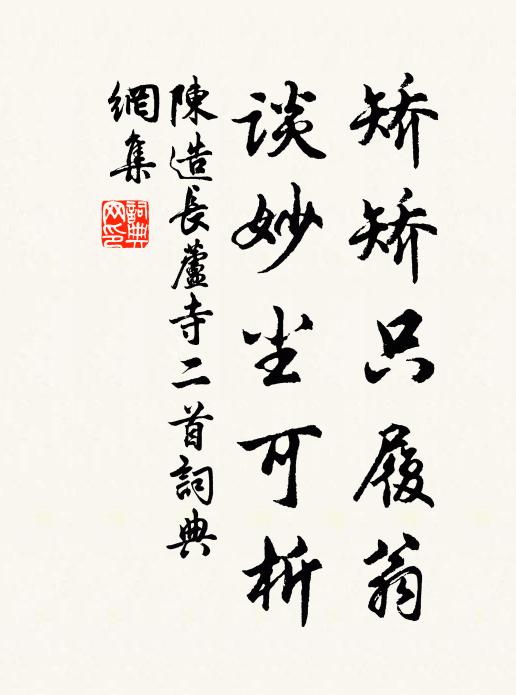 矫矫只履翁
談妙尘可析
陳造長蘆寺二首詞典
網集
詞典
网印